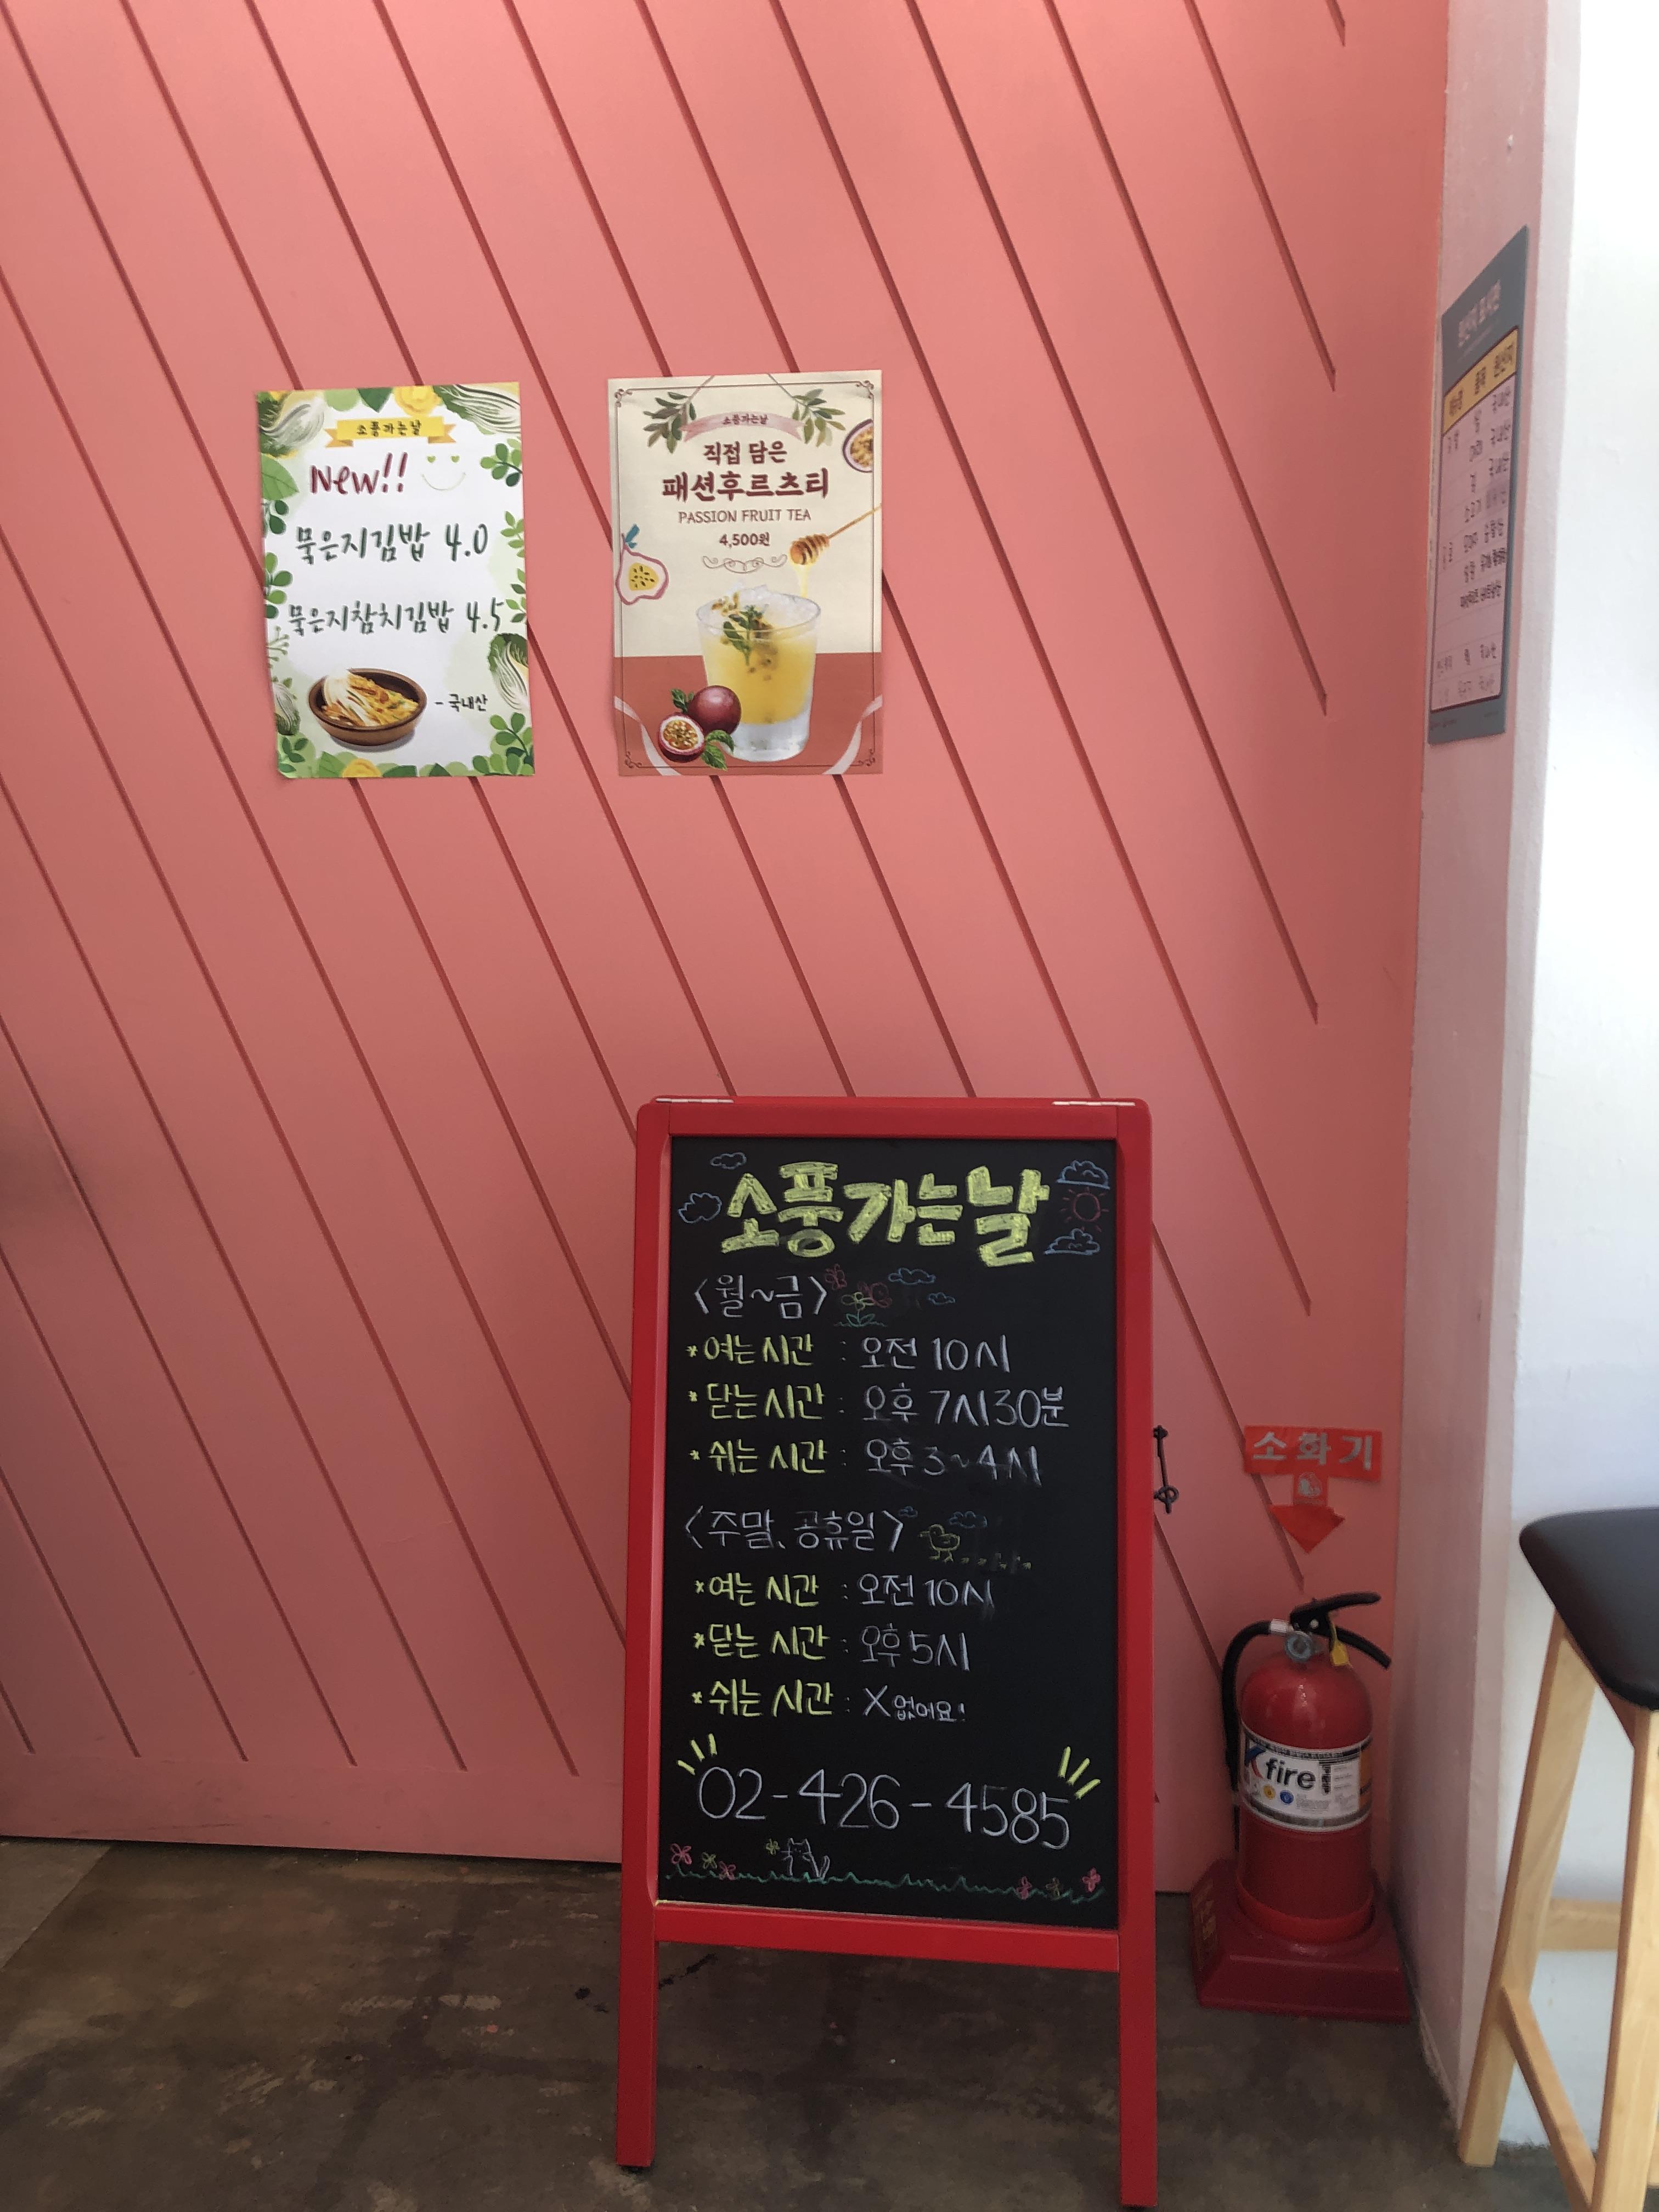 소풍가는날
New!!
묵은지김밥 4.0
묵은지참치김밥 4.5
- 국내산
소풍가는날
직접 담은
패션후르츠티
PASSION FRUIT TEA
4,500원
원산지 표시판
품목 원산지
쌀 국내산
국내산
김 국내산
소풍가는날
〈월~금〉
*여는 시간 : 오전 10시
*닫는 시간 : 오후 7시30분
*쉬는 시간 : 오후 3~4시
〈주말、공휴일〉
*여는 시간 : 오전 10시
*닫는 시간 : 오후 5시
*쉬는 시간 : X 없어요!
02-426-4585
소화기
Kfire1